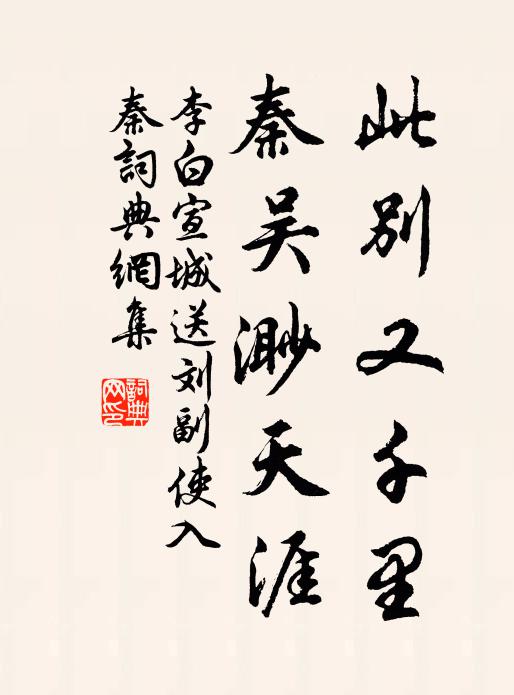 此别又千里
秦吴渺天涯
李白宣城送刘副使入
秦詞典網集
詞典
网印